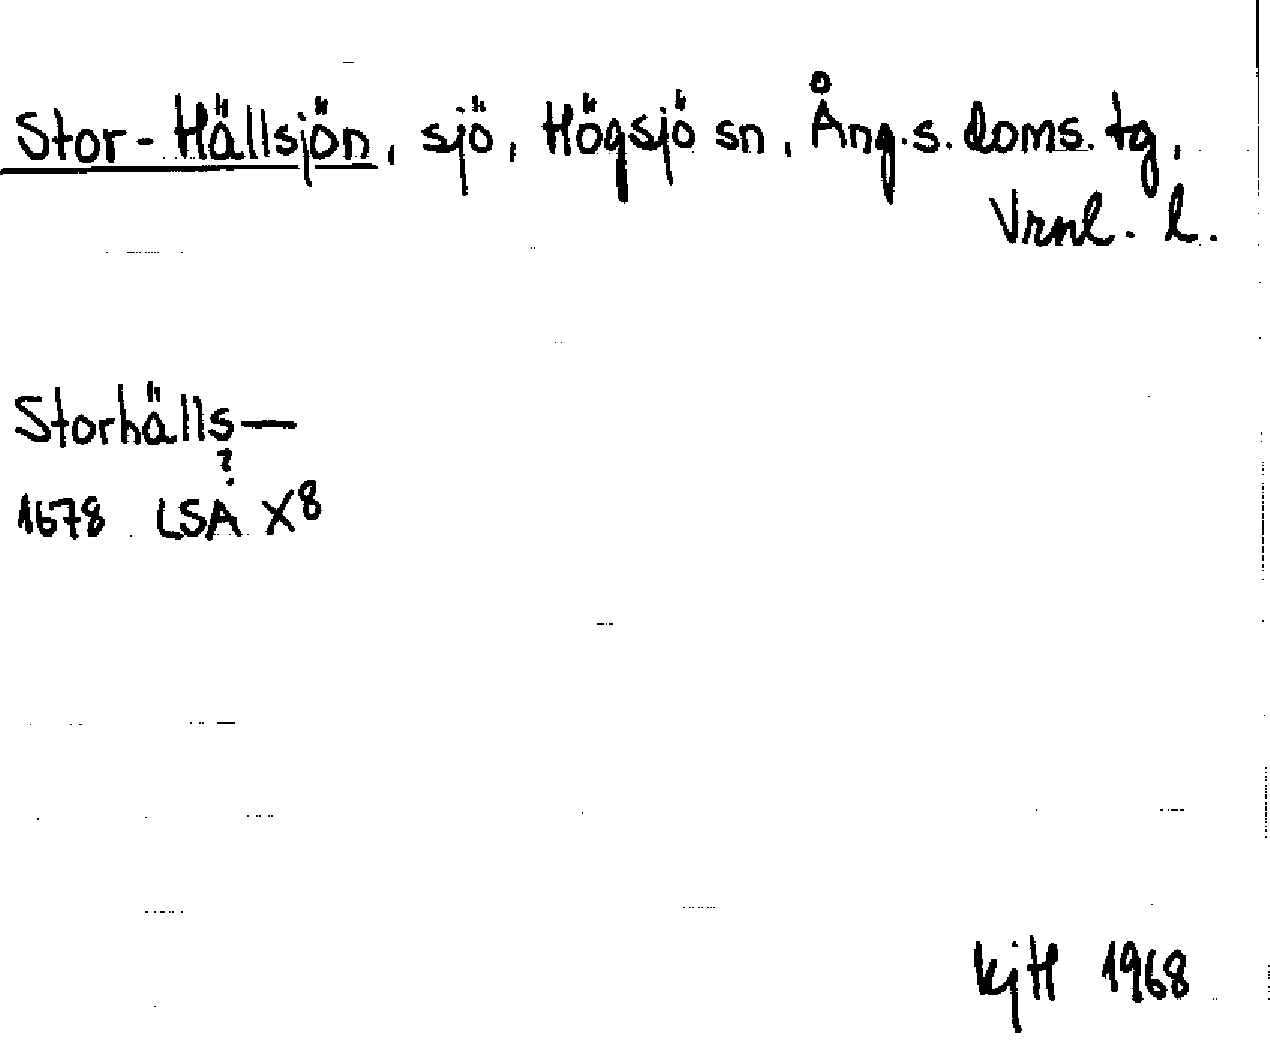 Stor-Hällsjön, sjö, Högsjö sn, Ång.s. doms. tg,
Vrnl. l.
Storhälls—
?
1678 LSA X8
kjH 1968